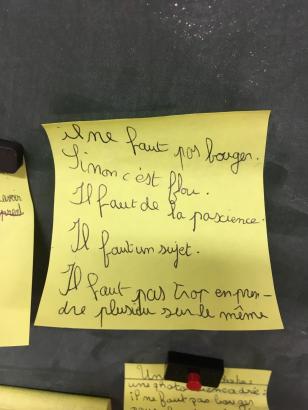 il ne faut pas bouger.
Sinon c'est flou.
Il faut de la pascience.
Il faut un sujet.
Il faut pas trop en pren-
dre plusidu sur le même
avoir
une photo
il ne faut pas bouger